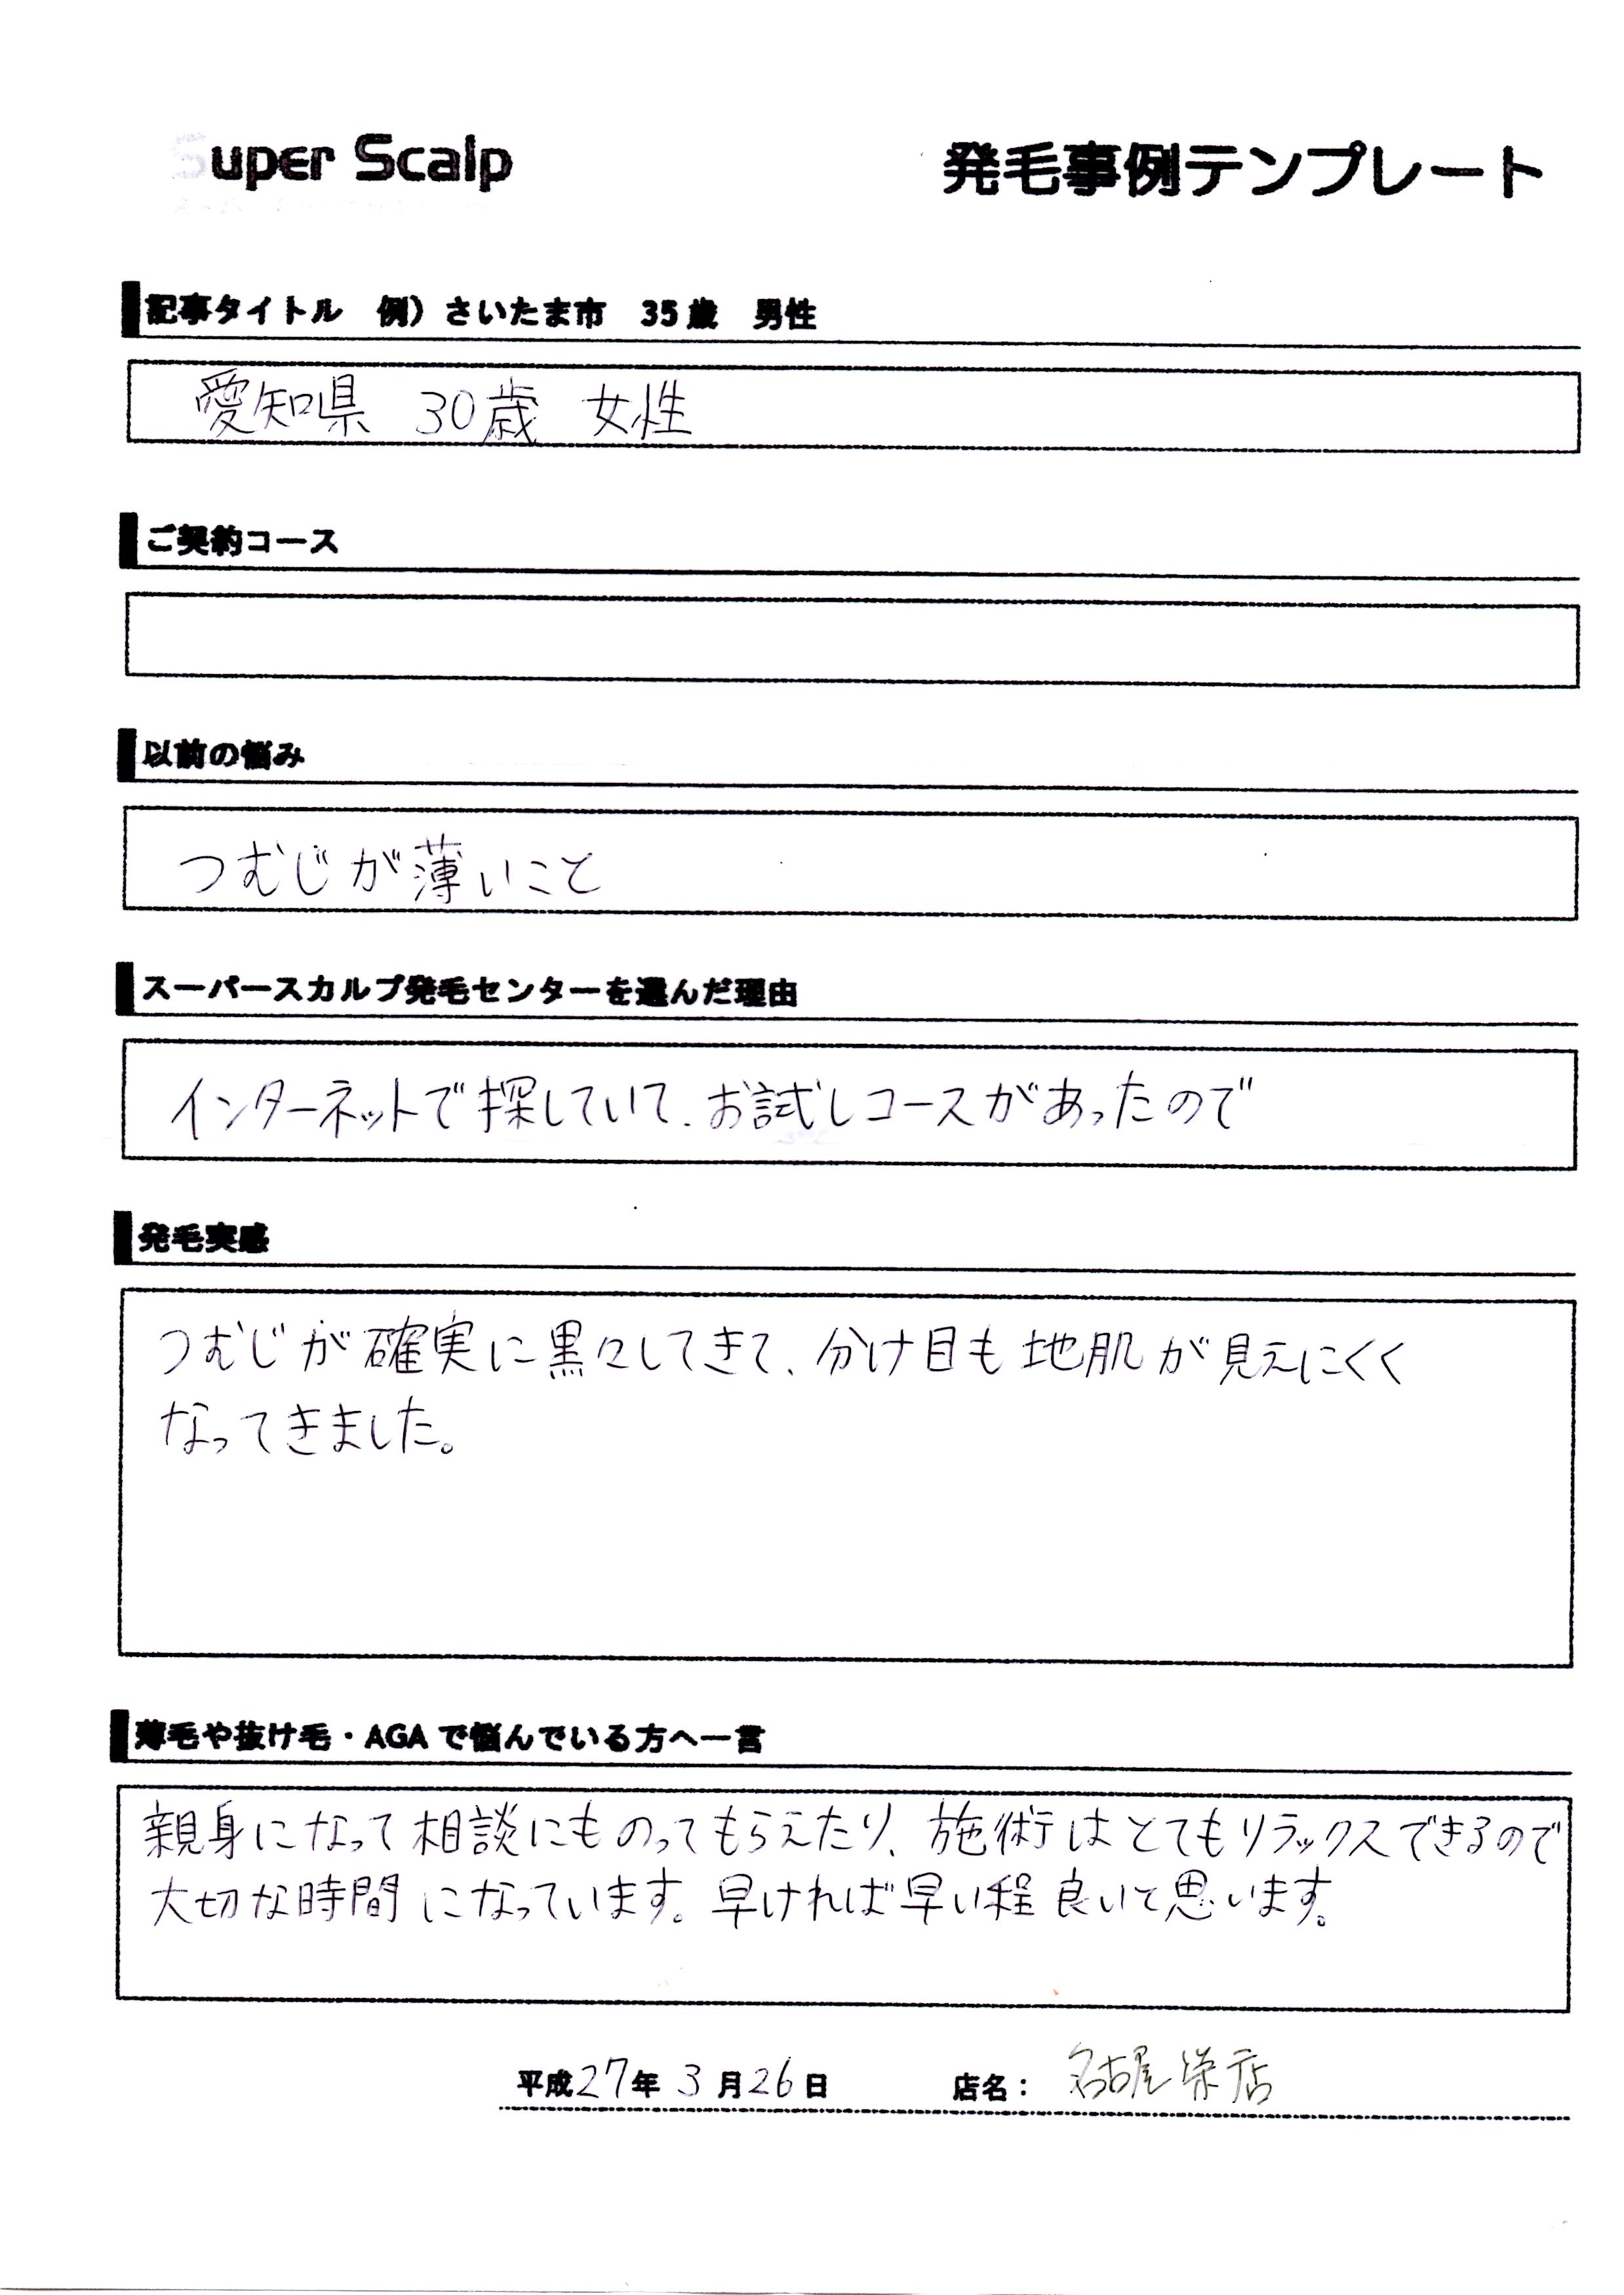 Super Scalp
発毛事例テンプレート
記事タイトル 例）さいたま市 35歳 男性
愛知県 30歳 女性
ご契約コース
以前の悩み
つむじが薄いこと
スーパースカルプ発毛センターを選んだ理由
インターネットで探していて、お試しコースがあったので
発毛実感
つむじが確実に黒々してきて、分け目も地肌が見えにくく
なってきました。
薄毛や抜け毛・AGAで悩んでいる方へ一言
親身になって相談にものってもらえたり、施術はとてもリラックスできるので
大切な時間になっています。早ければ早い程良いと思います。
平成27年3月26日 店名：名古屋栄店